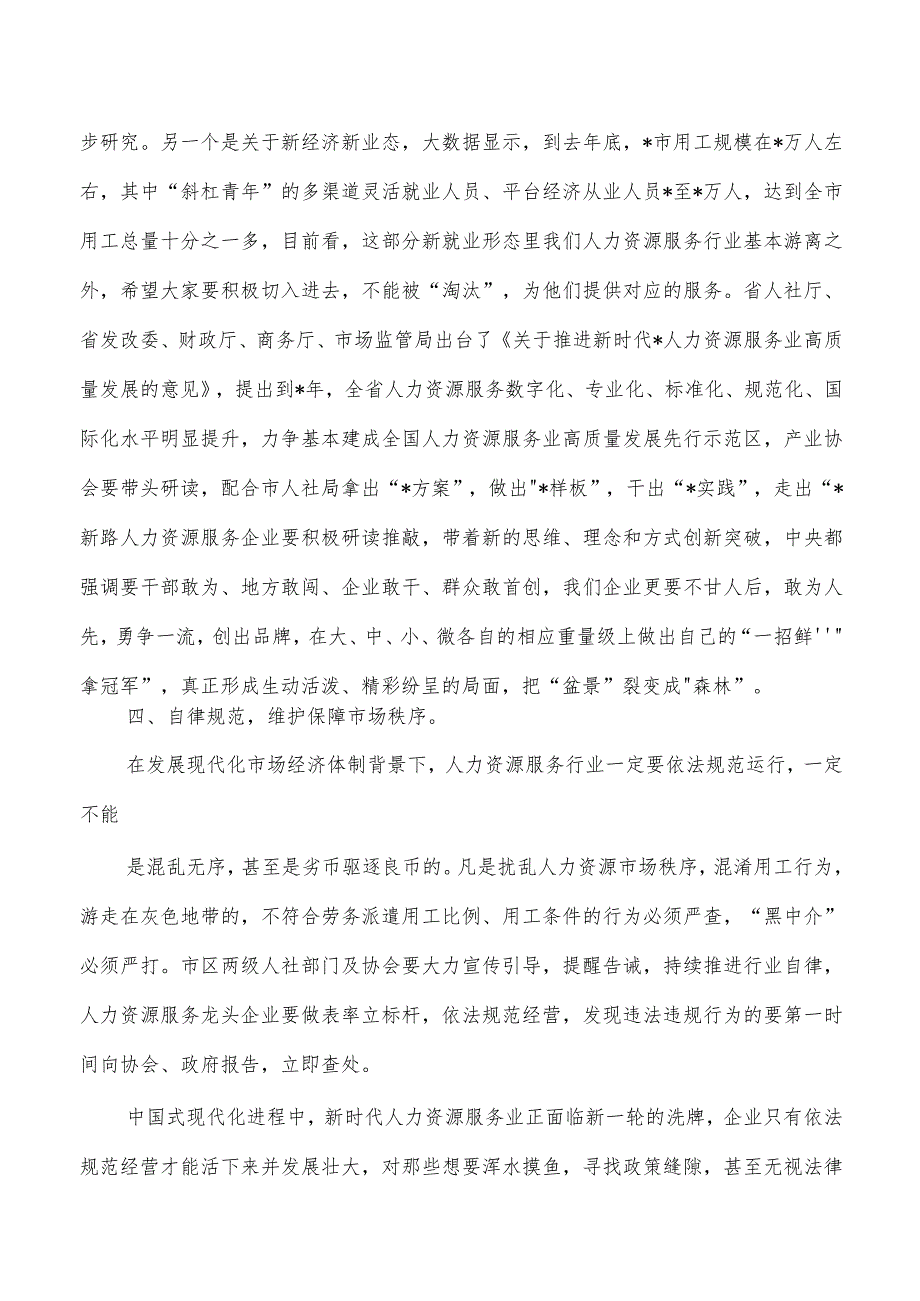 步研究。另一个是关于新经济新业态，大数据显示，到去年底，*市用工规模在*万人左
右，其中“斜杠青年”的多渠道灵活就业人员、平台经济从业人员*至*万人，达到全市
用工总量十分之一多，目前看，这部分新就业形态里我们人力资源服务行业基本游离之
外，希望大家要积极切入进去，不能被“淘汰”，为他们提供对应的服务。省人社厅、
省发改委、财政厅、商务厅、市场监管局出台了《关于推进新时代*人力资源服务业高质
量发展的意见》，提出到*年，全省人力资源服务数字化、专业化、标准化、规范化、国
际化水平明显提升，力争基本建成全国人力资源服务业高质量发展先行示范区，产业协
会要带头研读，配合市人社局拿出“*方案”，做出"*样板”，干出“*实践”，走出“*
新路人力资源服务企业要积极研读推敲，带着新的思维、理念和方式创新突破，中央都
强调要干部敢为、地方敢闯、企业敢干、群众敢首创，我们企业更要不甘人后，敢为人
先，勇争一流，创出品牌，在大、中、小、微各自的相应重量级上做出自己的“一招鲜''"
拿冠军”，真正形成生动活泼、精彩纷呈的局面，把“盆景”裂变成"森林”。
四、自律规范，维护保障市场秩序。
在发展现代化市场经济体制背景下，人力资源服务行业一定要依法规范运行，一定
不能
是混乱无序，甚至是劣币驱逐良币的。凡是扰乱人力资源市场秩序，混淆用工行为，
游走在灰色地带的，不符合劳务派遣用工比例、用工条件的行为必须严查，“黑中介”
必须严打。市区两级人社部门及协会要大力宣传引导，提醒告诫，持续推进行业自律，
人力资源服务龙头企业要做表率立标杆，依法规范经营，发现违法违规行为的要第一时
间向协会、政府报告，立即查处。
中国式现代化进程中，新时代人力资源服务业正面临新一轮的洗牌，企业只有依法
规范经营才能活下来并发展壮大，对那些想要浑水摸鱼，寻找政策缝隙，甚至无视法律